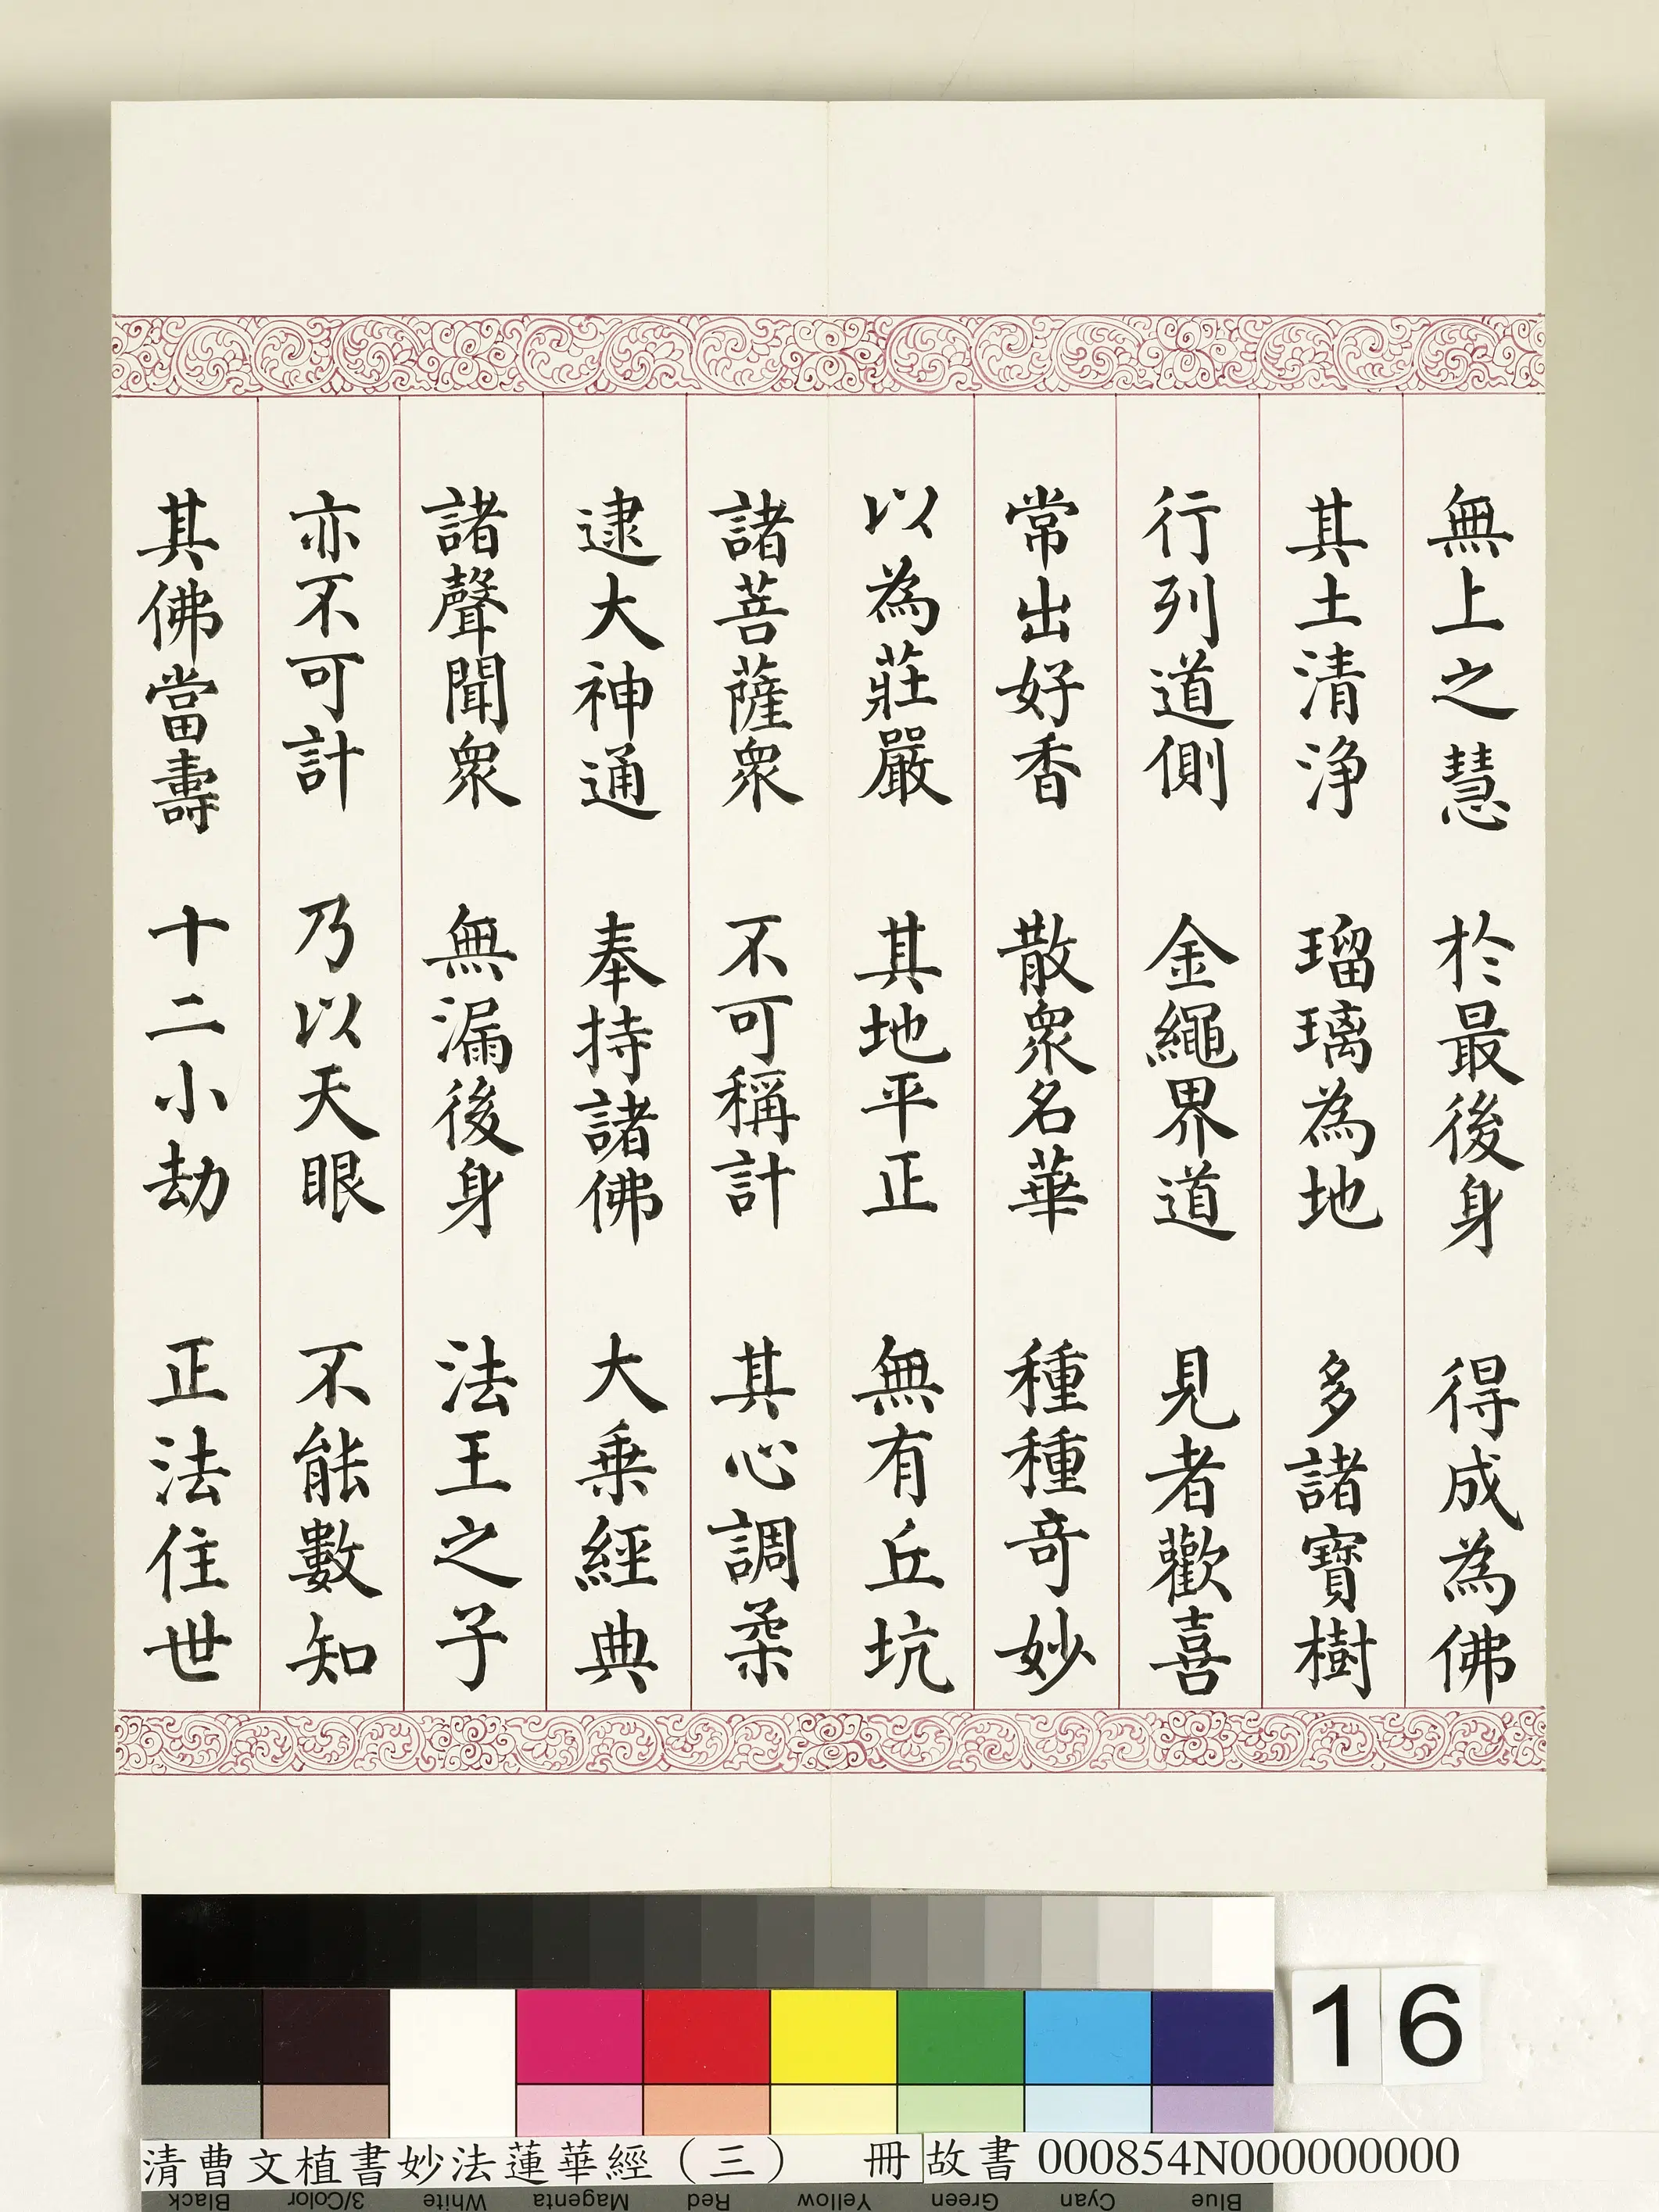 無上之慧 於最後身 得成為佛
其土清淨 瑠璃為地 多諸寶樹
行列道側 金繩界道 見者歡喜
常出好香 散衆名華 種種奇妙
以為莊嚴 其地平正 無有丘坑
諸菩薩衆 不可稱計 其心調柔
逮大神通 奉持諸佛 大乗經典
諸聲聞衆 無漏後身 法王之子
亦不可計 乃以天眼 不能數知
其佛當壽 十二小劫 正法住世
16
清曹文植書妙法蓮華經（三） 冊 故書 000854N000000000
Black 3/Color White Magenta Red Yellow Green Cyan Blue